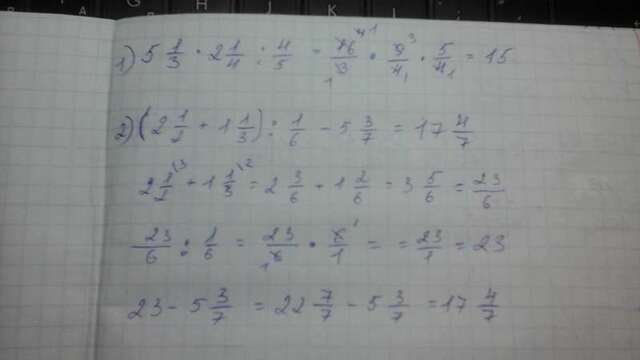 1) 5 1/3 · 2 1/4 : 4/5 = 16/3 · 9/4 · 5/4 = 15
2) (2 1/2 + 1 1/3) : 1/6 - 5 3/7 = 17 4/7
2 1/2 \3 + 1 1/3 \2 = 2 3/6 + 1 2/6 = 3 5/6 = 23/6
23/6 : 1/6 = 23/6 · 6/1 = = 23/1 = 23
23 - 5 3/7 = 22 7/7 - 5 3/7 = 17 4/7